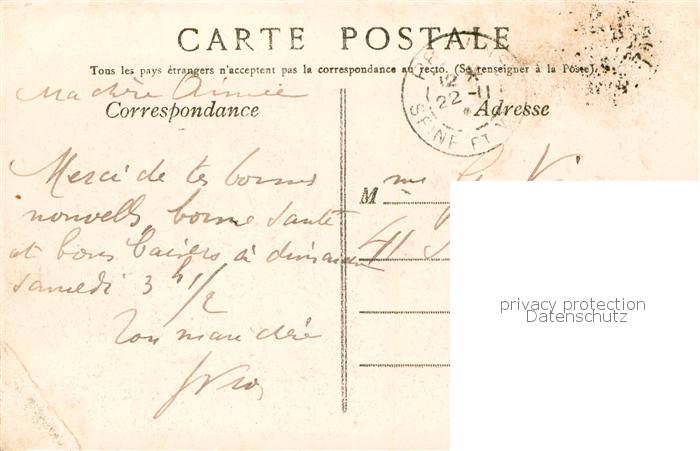 CARTE POSTALE
Tous les pays étrangers n'acceptent pas la correspondance au recto. (Se renseigner à la Poste).
Ma chère Aimée
Correspondance
Adresse
12
22-11
SEINE ET
Merci de tes bonnes
nouvelles, bonne santé
et bons baisers à dimanche
samedi 3 h 1/2
Ton mari chéri
M me
41
privacy protection
Datenschutz